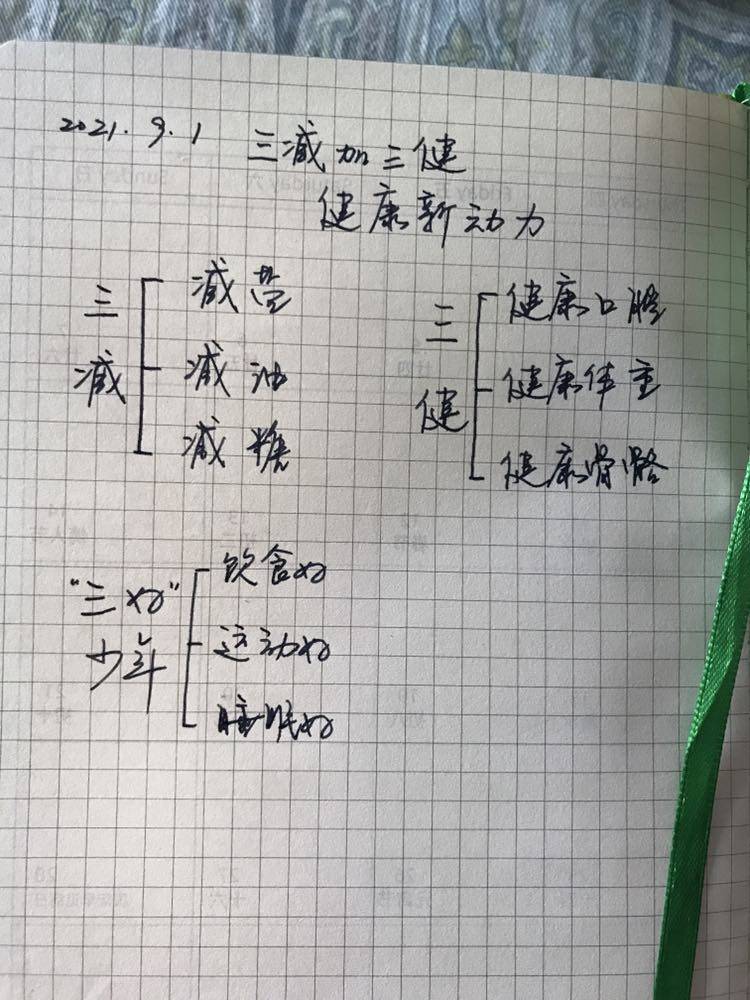 2021.9.1 三减加三健
健康新动力
三减
减盐
减油
减糖
三健
健康口腔
健康体重
健康骨骼
"三好"
少年
饮食好
运动好
睡眠好